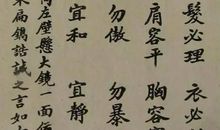 髮必理 衣必
肩容平 胸容
勿傲 勿暴
宜和 宜静
左壁懸大鏡一面
誠之言如